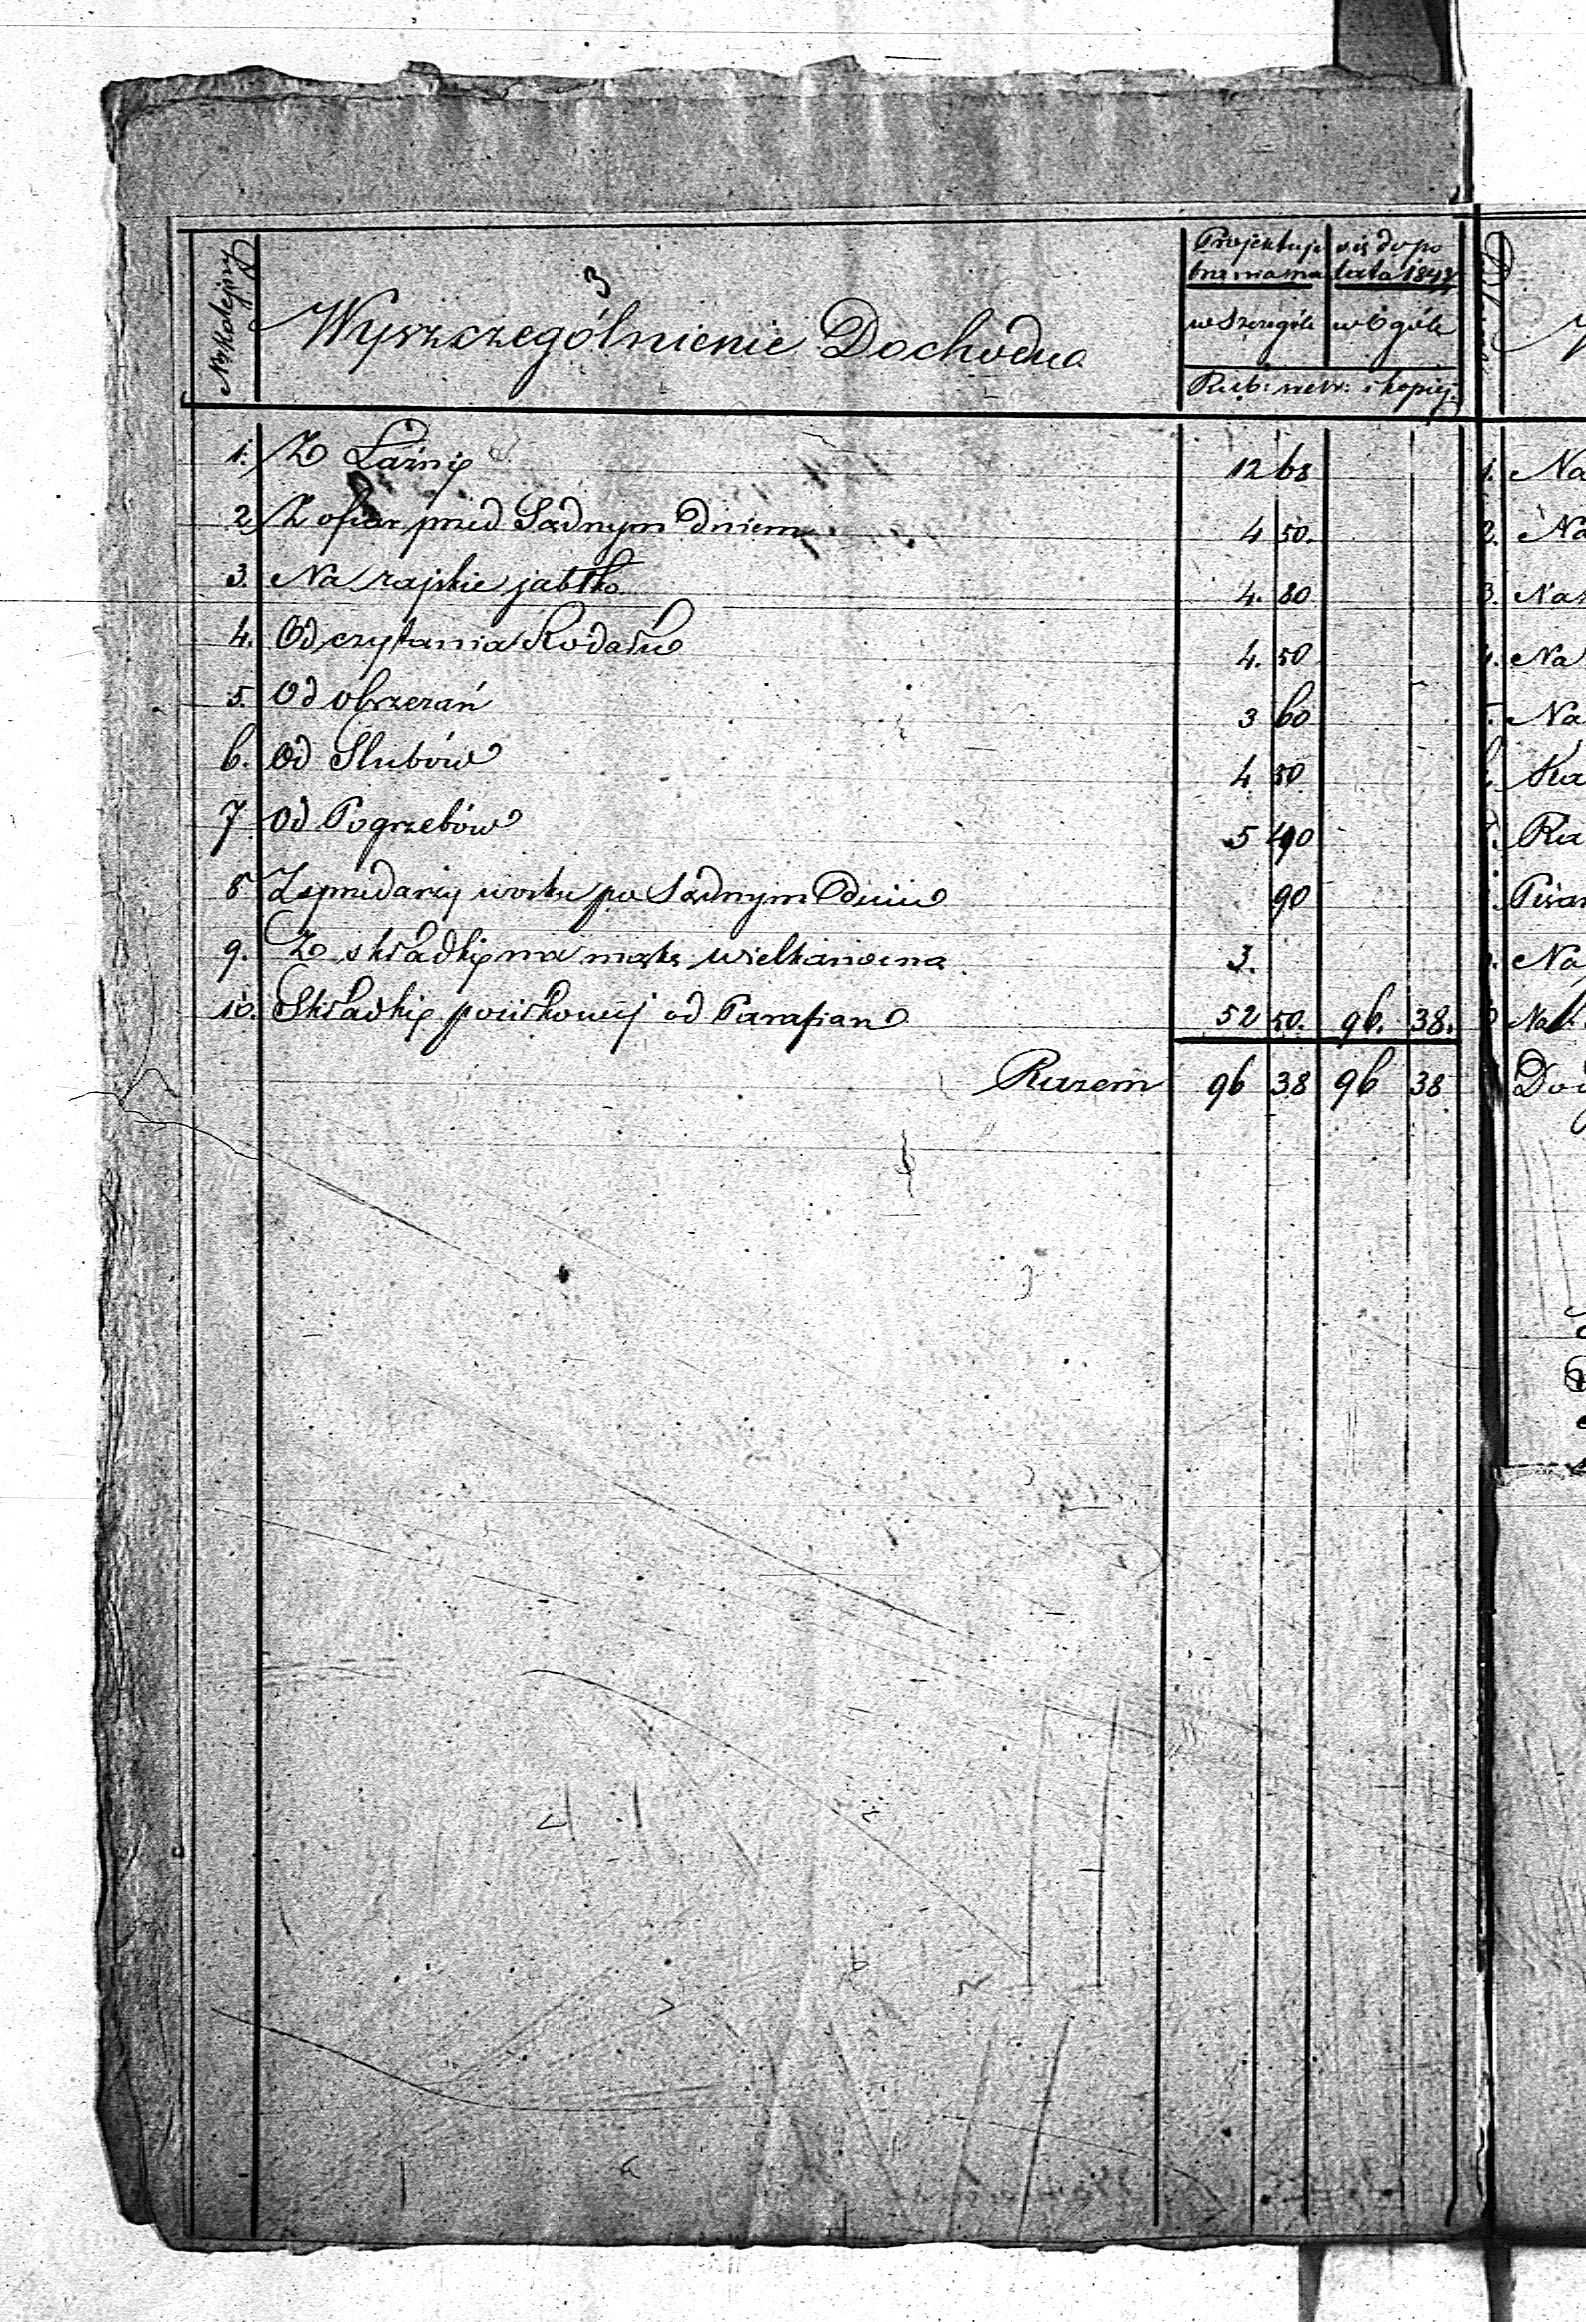 3
No Kolejny
Wyszczególnienie Dochodu
Projektuje się do po
trzymania lata 184
w Szczególe w Ogóle
Rub: srebr: i kopiej:
1. Z Łaźni 12 68
2 Z ofiar przed Sądnym dniem 4 50.
3. Na rajskie jabłko 4. 80
4. Od czytania Rodałów 4. 50
5. Od obrzezań 3 60
6. Od Ślubów 4 50
7 Od Pogrzebów 5 40
8 Z sprzedaży wosku po Sądnym Dniu 90
9. Z składki na mąkę wielkanocną 3.
10. Składki od Parafian 52 50. 96. 38.
Razem 96 38 96 38
1. Na
2. Na
3. Na
4. Na
Na
Na
Na
Do